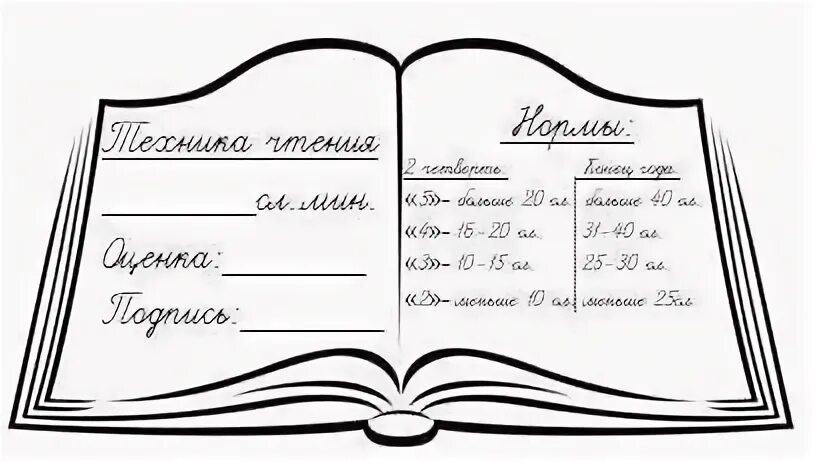 Техника чтения
сл. мин.
Оценка:
Подпись:
Нормы:
2 четверть Конец года
«5»- больше 20 сл. больше 40 сл.
«4»- 16-20 сл. 31-40 сл.
«3»- 10-15 сл. 25-30 сл.
«2»- меньше 10 сл. меньше 25сл.